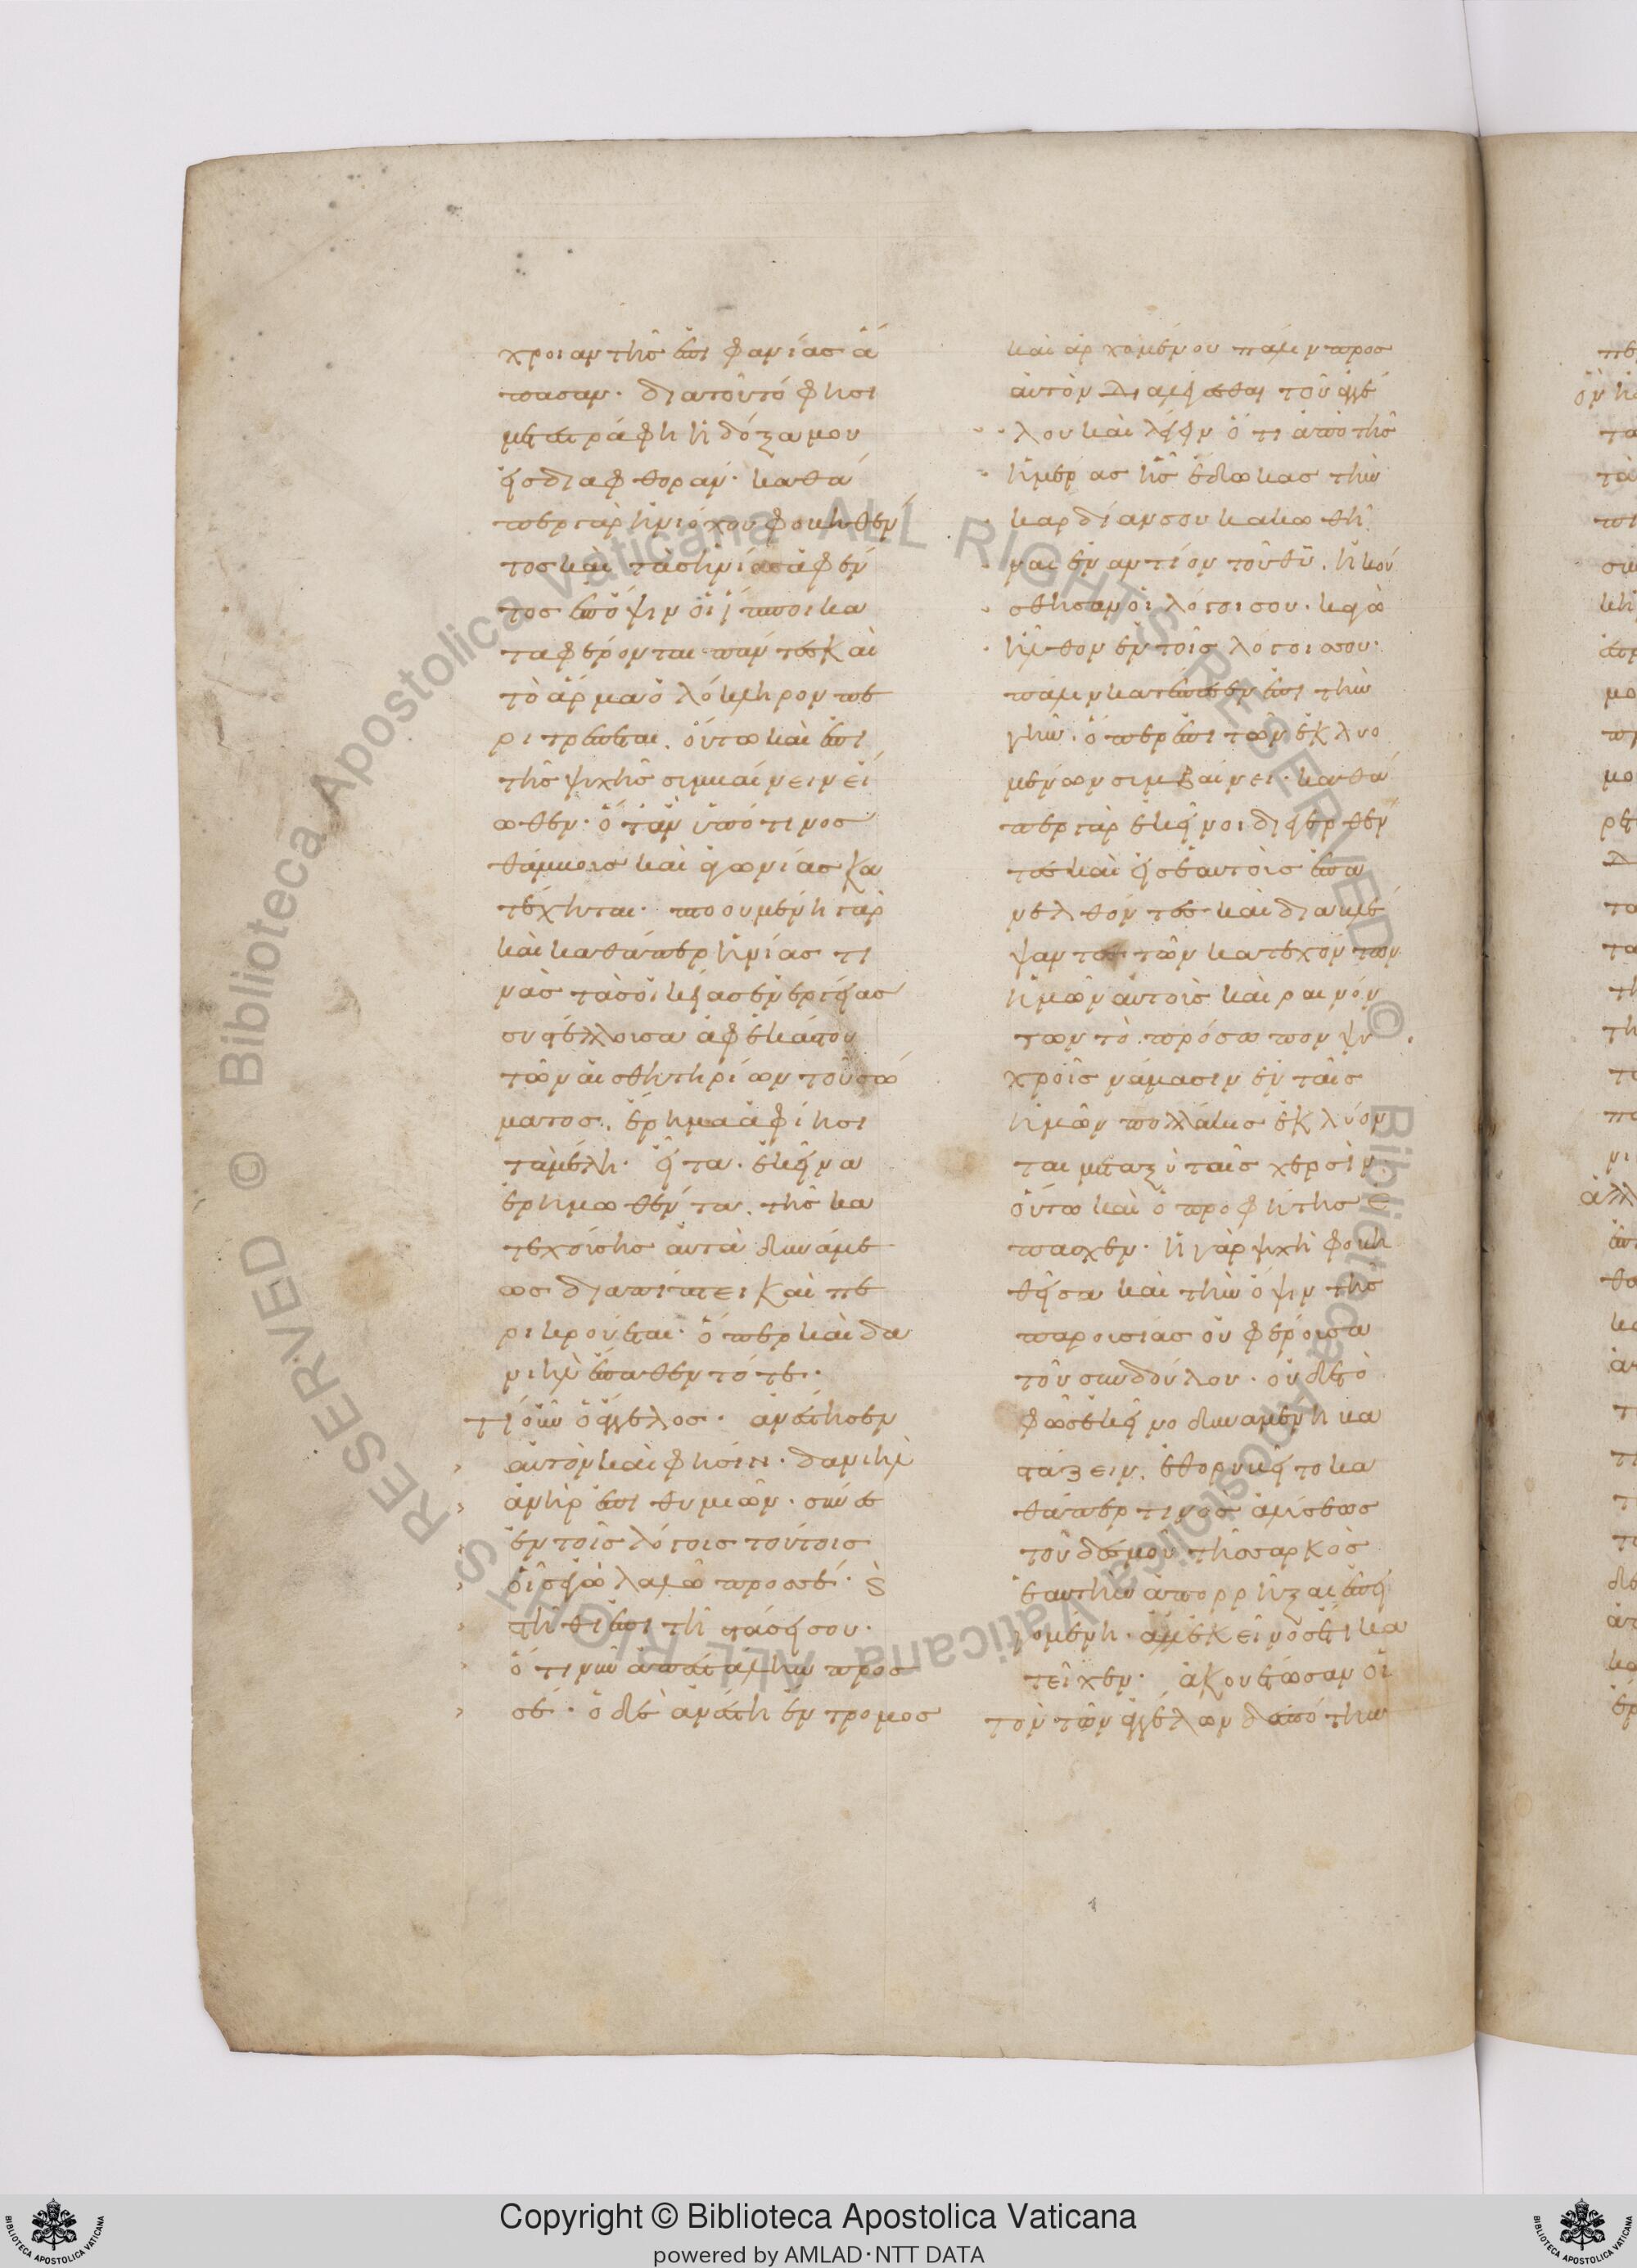 χροιαν τῆς ἐπιφανίας ἅ
πασαν· διατοῦτό φησι
μετεστράφη ἡ δόξα μου
εἰς διαφθοράν· καθά
περ γὰρ ἡνιόχου φοβηθέν
τος καὶ τὰς ἡνίας ἀφέν
τος ἐπόψιν οἱ ἵπποι κα
ταφέρονται πάντες καὶ
τὸ ἅρμα ὁλόκληρον πε
ριτρέπεται. οὕτω καὶ ἐπὶ
τῆς ψυχῆς συμβαίνειν εἴ
ωθεν· ὅταν ὑπό τινος
θάμβους καὶ ἀγωνίας κα
τέχηται· πτοουμένη γὰρ
καὶ καθάπερ ἡνίας τι
νὰς τὰς οἰκείας ἐνεργείας
συστέλλουσα ἀφ ἑκάστου
τῶν αἰσθητηρίων τοῦ σώ
ματος. ἔρημα ἀφίησι
τὰ μέλη· εἶτα. ἐκεῖνα
ἐρημωθέντα. τῆς κα
τεχούσης αὐτὰ δυνάμε
ως διαπίπτει καὶ πε
ρικρούεται· ὅπερ καὶ δα
νιὴλ ἔπαθεν τότε·
τί οὖν ὁ ἄγγελος· ἀνέστησεν
αὐτὸν καὶ φησίν· δανιὴλ
ἀνὴρ ἐπιθυμιῶν· σύνες
ἐν τοῖς λόγοις τούτοις
οἷς ἐγὼ λαλῶ πρὸς σέ· ϛ
στῆθι ἐπὶ τῇ στάσει σου·
ὅτι νῦν ἀπεστάλην πρὸς
σέ· ὁ δὲ ἀνέστη ἔντρομος
καὶ ἀρχομένου πάλιν πρὸς
αὐτὸν διαλέγεσθαι τοῦ ἀγγέ
λου καὶ λέγειν ὅτι ἀπὸ τῆς
ἡμέρας ἧς ἔδωκας τὴν
καρδίαν σου κακωθῆ
ναι ἐναντίον τοῦ θῦ. ἠκού
σθησαν οἱ λόγοι σου· κἀγὼ
ἦλθον ἐν τοῖς λόγοις σου·
πάλιν κατέπεσεν ἐπὶ τὴν
γῆν· ὅπερ ἐπὶ τῶν ἐκλυο
μένων συμβαίνει· καθά
περ γὰρ ἐκεῖνοι διεγερθέν
τες καὶ εἰς ἑαυτοὺς ἐπα
νελθόντες καὶ διαβλέ
ψαντες τῶν κατεχόντων
ἡμῶν αὐτοὺς καὶ ραινόν
των τὸ πρόσωπον ψυ
χροῖς νάμασιν ἐν ταῖς
ἡμῶν πολλάκις ἐκλύον
ται μεταξὺ ταῖς χερσίν·
οὕτω καὶ ὁ προφήτης
πασχεν· ἡ γὰρ ψυχὴ φοβη
θεῖσα καὶ τὴν ὄψιν τῆς
παρουσίας οὐ φέρουσα
τοῦ συνδούλου· οὐδὲ τὸ
φῶς ἐκεῖνο δυναμένη βα
στάζειν. ἐθορυβεῖτο κα
θάπερ τινος ἁλύσεως
τοῦ δεσμοῦ τῆς σαρκὸς
ἑαυτὴν ἀπορρῆξαι ἐπει
γομένη· ἀλλ ἐκεῖνος ἔτι κα
τεῖχεν· ἀκουέτωσαν οἱ
τὸν τῶν ἀγγέλων δεσπότην